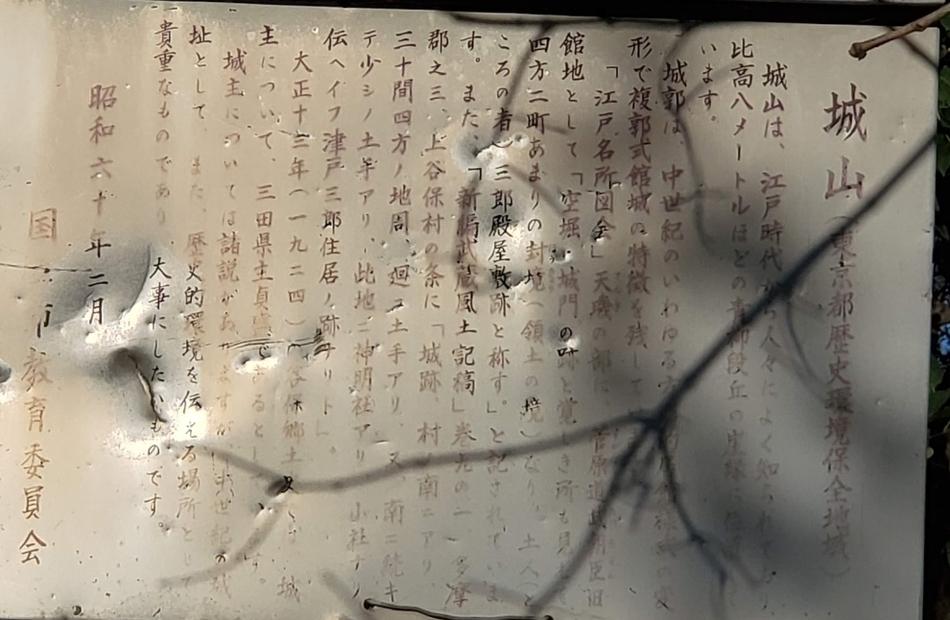 城山（東京都歴史環境保全地域）
城山は、江戸時代から人々によく知られており
比高八メートルほどの青柳段丘の
います。
城郭は、中世紀のいわゆる
形で複郭式館城の特徴を残して
「江戸名所図会」天璣の部に、菅原道
館地として「空堀・城門の跡と覚しき所も見
四方二町あまりの封境（領土の境）なり、土人（と
ころの者）三郎殿屋敷跡と称す。」と記されていま
す。また、「新編武蔵風土記稿」巻九の二　多摩
郡之三、上谷保村の条に「城跡、村ノ南ニアリ、
三十間四方ノ地周、廻ニ土手アリ、又、南ニ続キ
テ少シノ土手アリ、此地ニ神明社アリ　山社ナリ
伝ヘイフ津戸三郎住居ノ跡ナリト」。
大正十三年（一九二四）谷保郷土史　城
主について、三田県主貞盛であるとし　す。
城主については諸説がありますが　世紀の城
址として、また、歴史的環境を伝える場所として
貴重なものであり、大事にしたいものです。
昭和六十年二月
国　市教育委員会